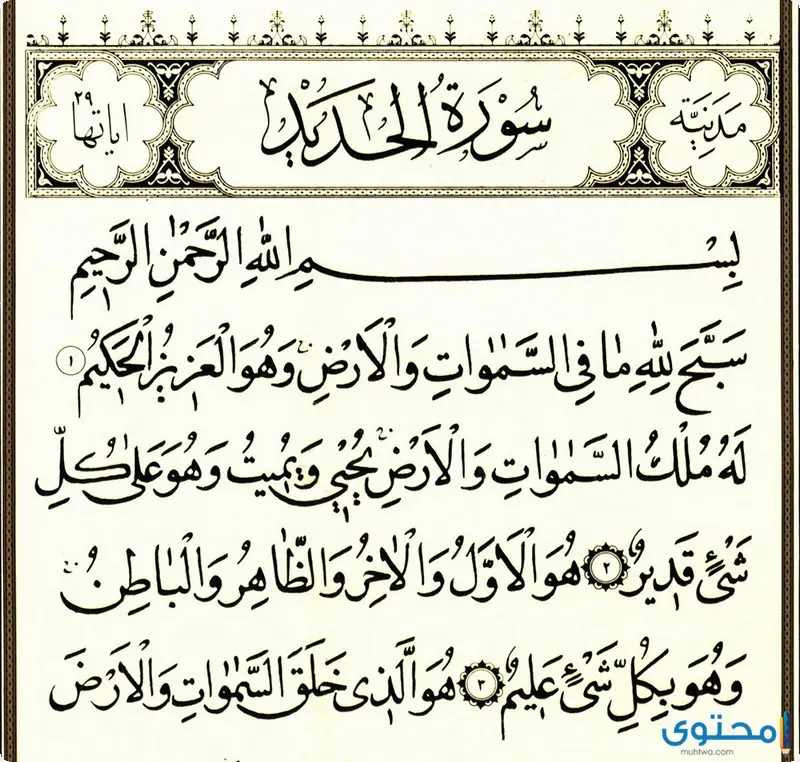 مَدَنِيَّة سُورَةُ الْحَدِيدِ اياتها ٢٩
بِسْمِ اللهِ الرَّحْمٰنِ الرَّحِيمِ
سَبَّحَ لِلّٰهِ مَا فِي السَّمٰوَاتِ وَالْاَرْضِ وَهُوَ الْعَزِيزُ الْحَكِيمُ ١
لَهُ مُلْكُ السَّمٰوَاتِ وَالْاَرْضِ يُحْيِي وَيُمِيتُ وَهُوَ عَلٰى كُلِّ
شَيْءٍ قَدِيرٌ ٢ هُوَ الْاَوَّلُ وَالْاٰخِرُ وَالظَّاهِرُ وَالْبَاطِنُ
وَهُوَ بِكُلِّ شَيْءٍ عَلِيمٌ ٣ هُوَ الَّذِي خَلَقَ السَّمٰوَاتِ وَالْاَرْضَ
محتوى
muhtwa.com